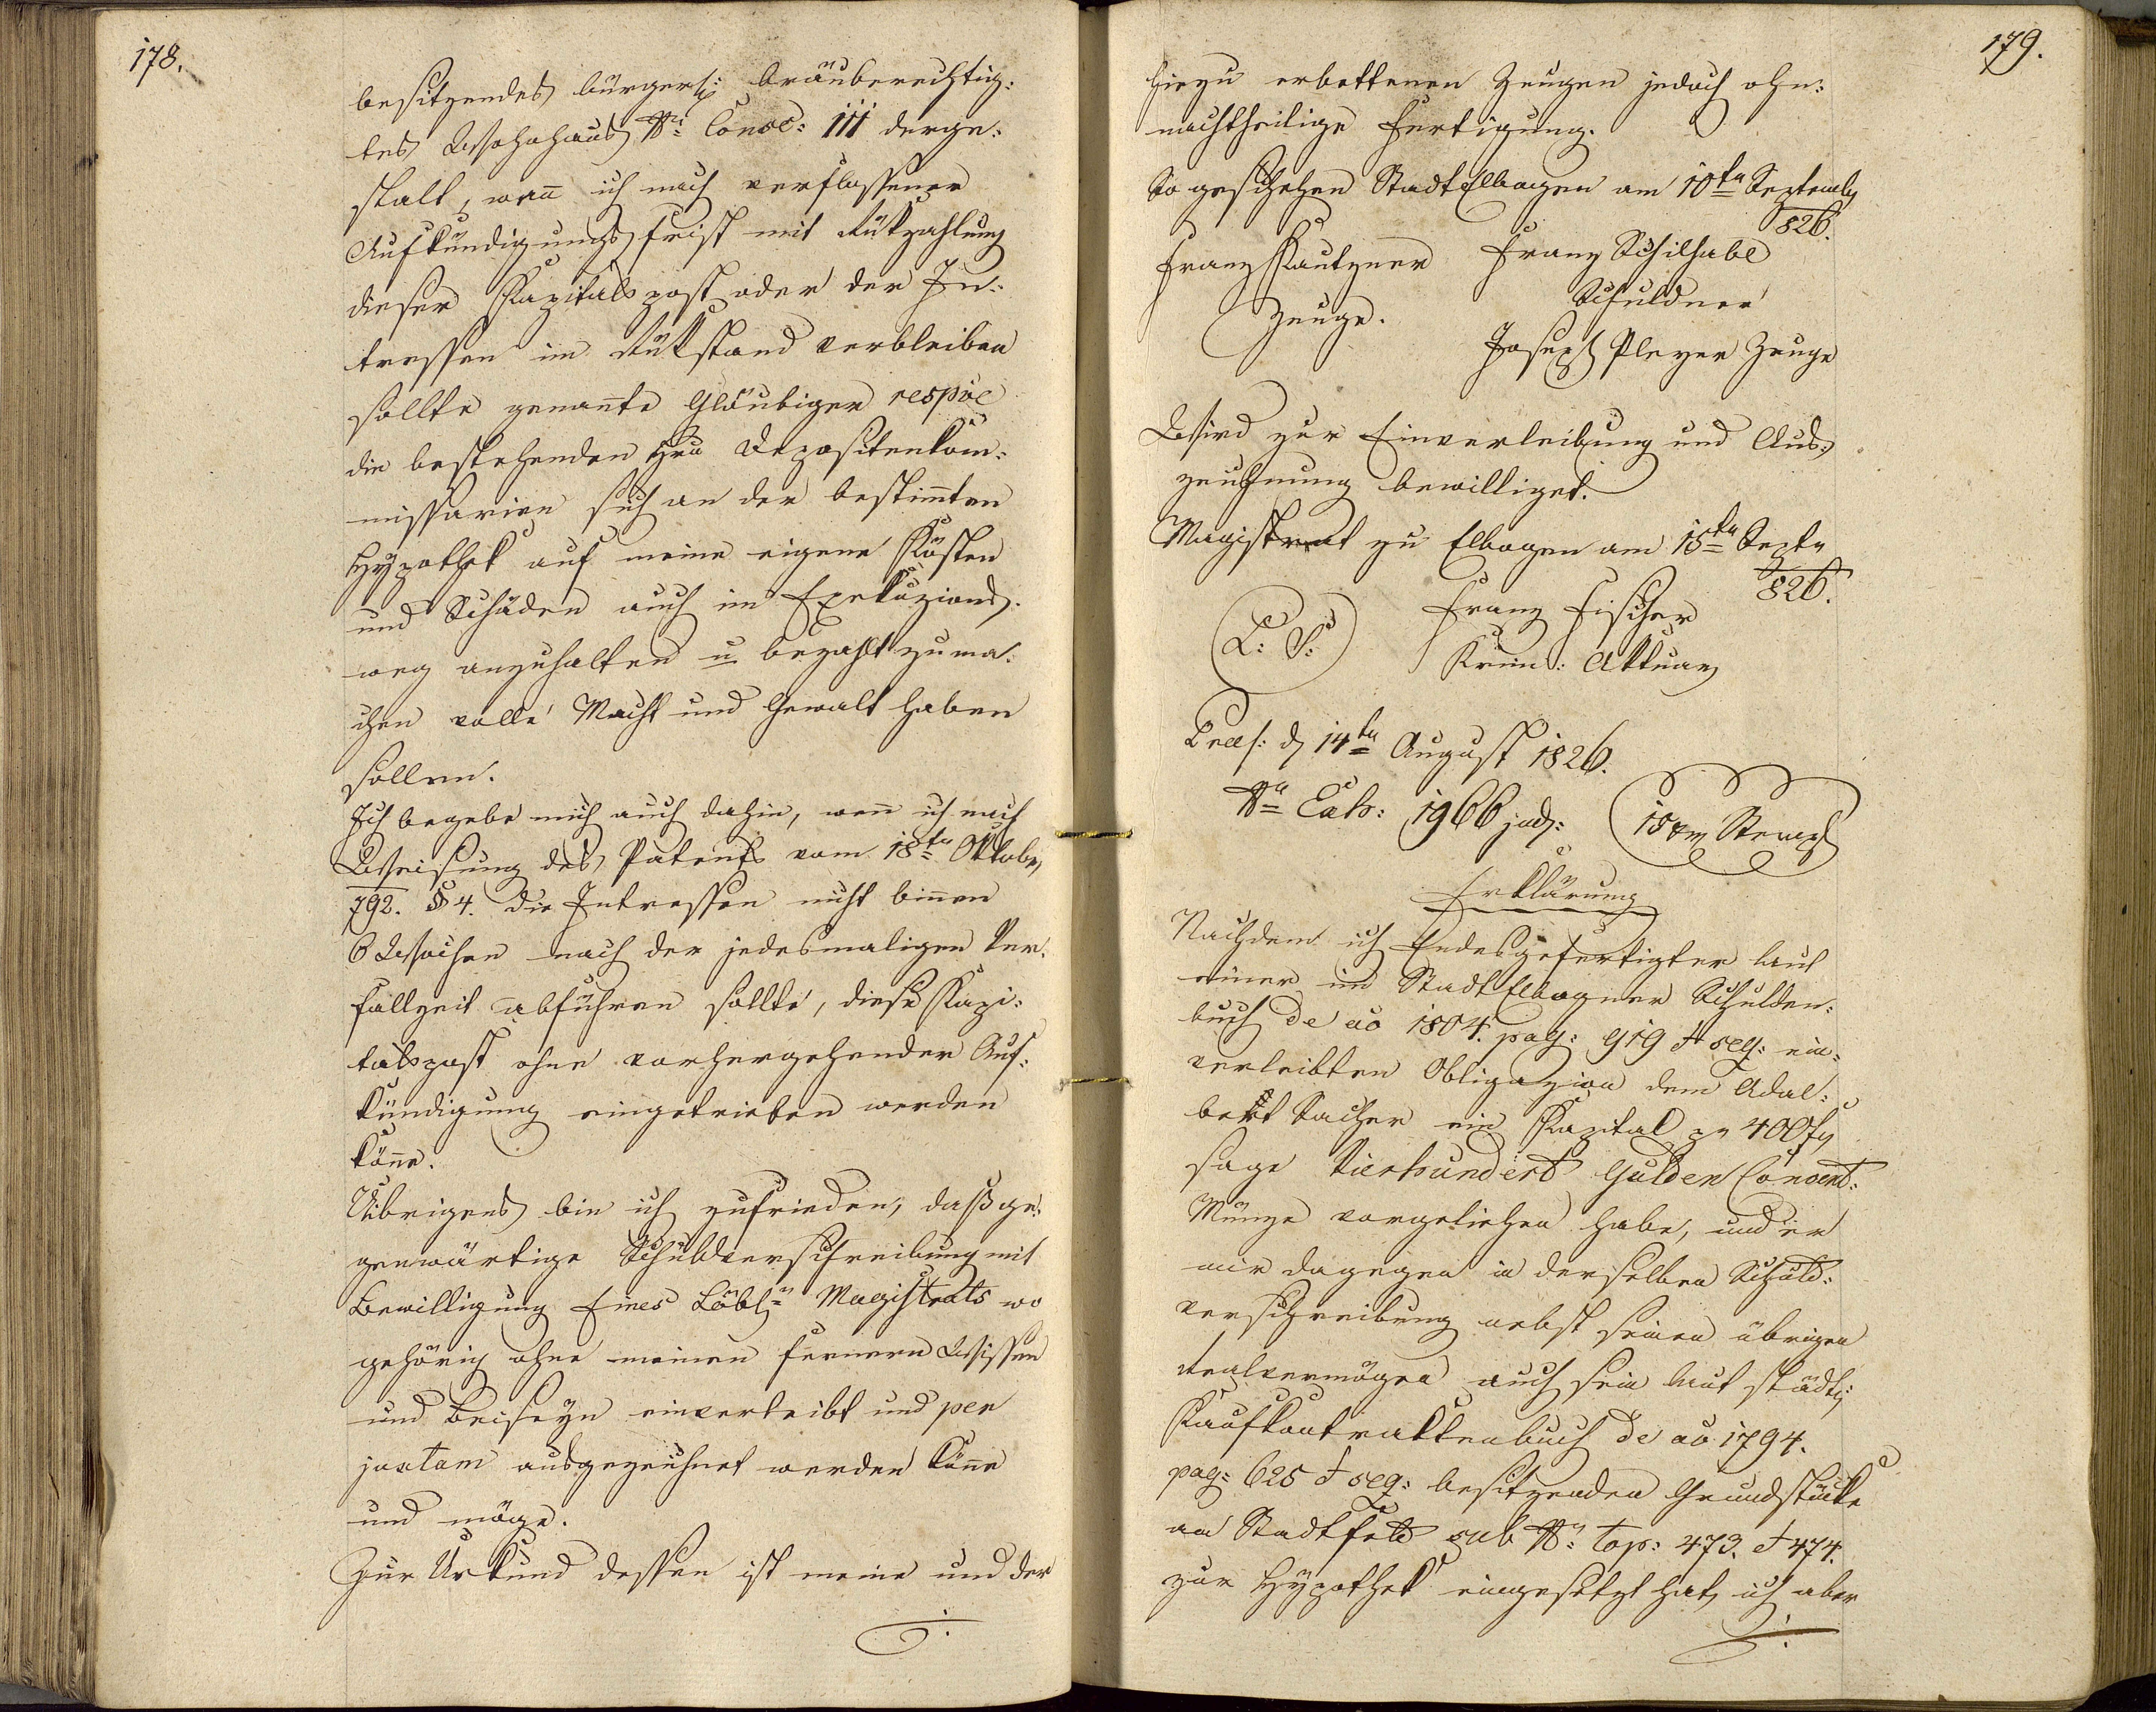 178.
besitzendes bürgerl: bräuberechtig:
tes Wohnhaus Nr: Consc: 111 derge:
stalt, wen̄ ich nach verflossener
Aufkündigungs frist mit Rükzahlung
dieser Kapitals post oder der In:
tressen im Rükstand verbleiben
sollte genan̄te Gläubiger respve
die bestehenden Hrn Depositenkom̄:
missarien sich an der bestim̄ten
Hypothek auf meine eigene Kösten
und Schäden auch im Exekuzions:
weg anzuhalten u bezahlt zu ma:
chen volle Macht und Gewalt haben
sollen.
Ich begebe mich auch dahin, wen̄ ich nach
Weisung des Patents vom 18ten Oktober
792. § 4. die Intressen nicht bin̄en
6 Wochen nach der jedesmaligen Ver:
fallzeit abführen sollte, diese Kapi:
talspost ohne vorhergehender Auf:
kündigung eingetrieben werden
kön̄e.
Uibrigens bin ich zufrieden, daß ge:
genwärtige Schuldverschreibung mit
Bewilligung Eines Löbln Magistrats wo
gehörig ohne meinen fernern Wissen
und Beiseyn einverleibt und per
juxtam ausgezeichnet werden kön̄e
und möge.
Zur Urkund dessen ist meine und der
./.
179.
hiezu erbettenen Zeugen jedoch ohn:
nachtheilige Fertigung.
So geschehen Stadt Elbogen am 10ten September
826.
Franz Kautzner Franz Schilhabl
Zeuge. Schuldner
Joseph Pleyer Zeuge
Wird zur Einverleibung und Aus:
zeichnung bewilliget.
Magistrat zu Elbogen am 15ten Septr
826.
L: S: Franz Fischer
Krim: Aktuar
Praes: d 14ten August 1826.
Nr Exh: 1966 jud: 15 xr Stempl
Erklärung
Nachdem ich Endesgefertigter laut
einer im Stadt Elbogner Schulden:
buch de ao 1804. pag: 919 et seq: ein:
verleibten Obligazion dem Adal:
bert Sacher ein Kapital pr 400 fr
sage Vierhundert Gulden Convent:
Münze vorgeliehen habe, und er
mir dagegen in derselben Schuld:
verschreibung nebst seinen übrigen
Realvermögen auch sein laut städt:
Kaufkontraktenbuch de ao 1794.
pag: 625 et seq: besitzenden Grundstücke
am Stadtfeld sub Nr: top: 473. et 474.
zur Hypothek eingesetzt hat, ich aber
./.